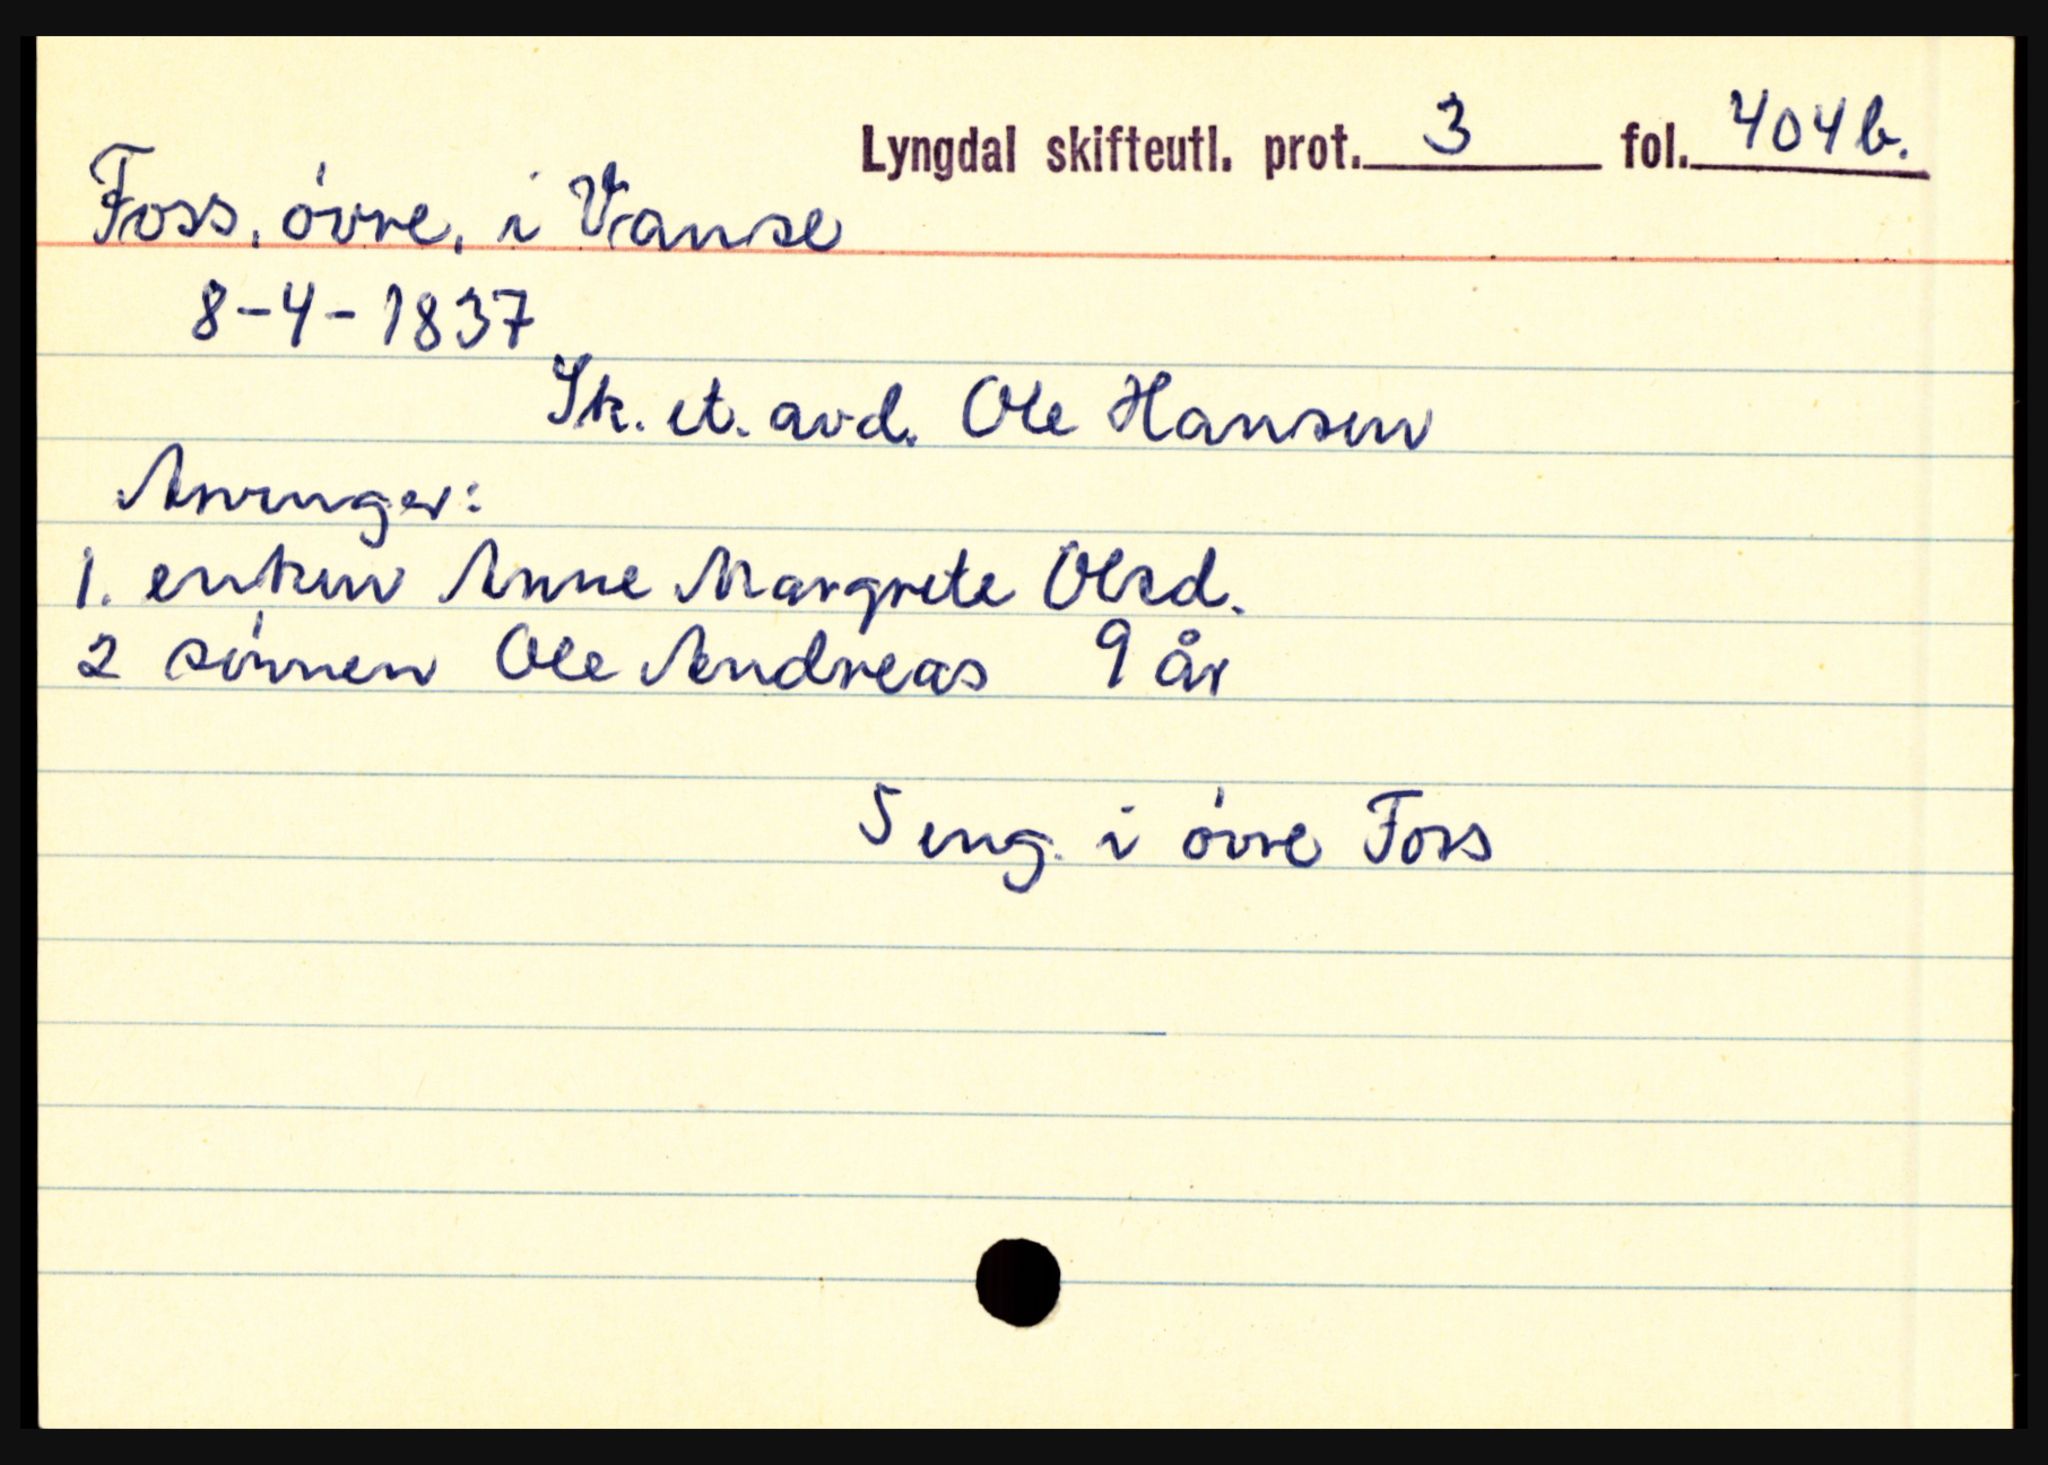 Lyngdal skifteutl. prot. 3 fol. 404b.
Foss, øvre, i Vanse
8-4-1837
Sk. et. avd. Ole Hansen
Arvinger:
1. enken Anne Margrete Olsd.
2 sønnen Ole Andreas 9 år
5 eng. i øvre Foss